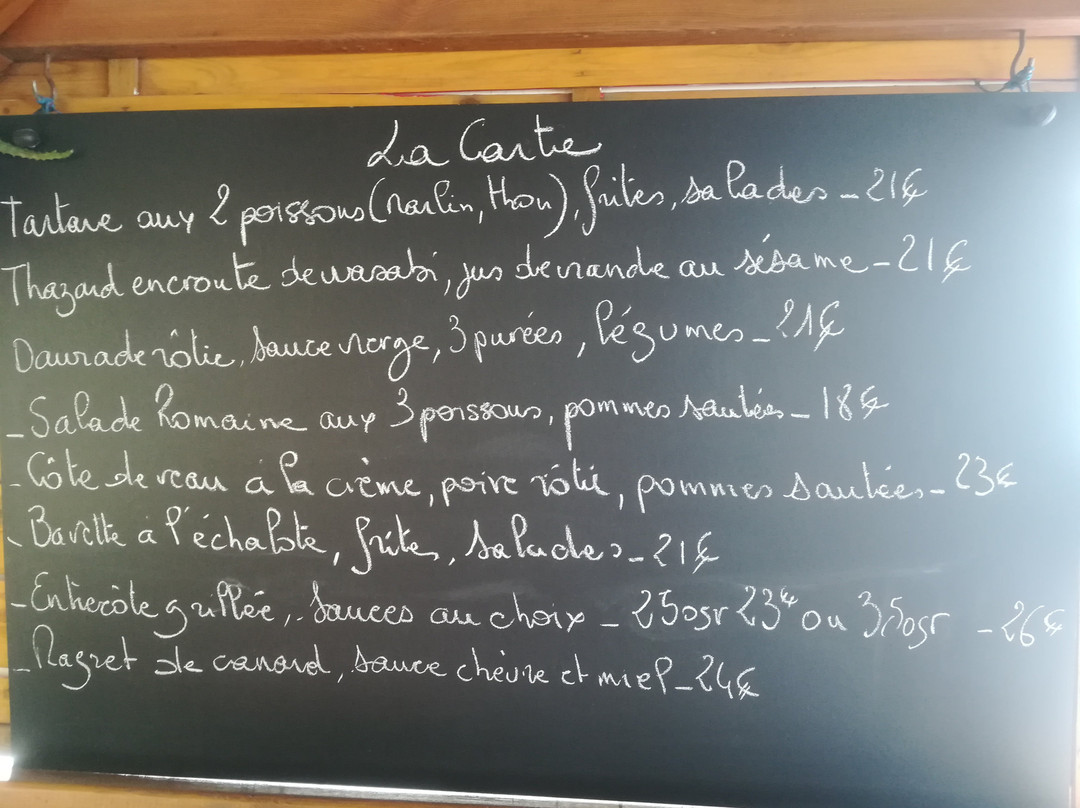 La Carte
Tartare aux 2 poissons (marlin, thon), frites, salades - 21€
Thazard encroute de wasabi, jus de viande au sésame - 21€
Daurade rôtie, sauce vierge, 3 purées, légumes - 21€
- Salade Romaine aux 3 poissons, pommes sautées - 18€
- Côte de veau à la crème, poire rôtie, pommes sautées - 23€
- Bavette à l'échalote, frites, salades - 21€
- Entrecôte grillée, sauces au choix - 250gr 23€ ou 350gr - 26€
- Magret de canard, sauce chèvre et miel - 24€